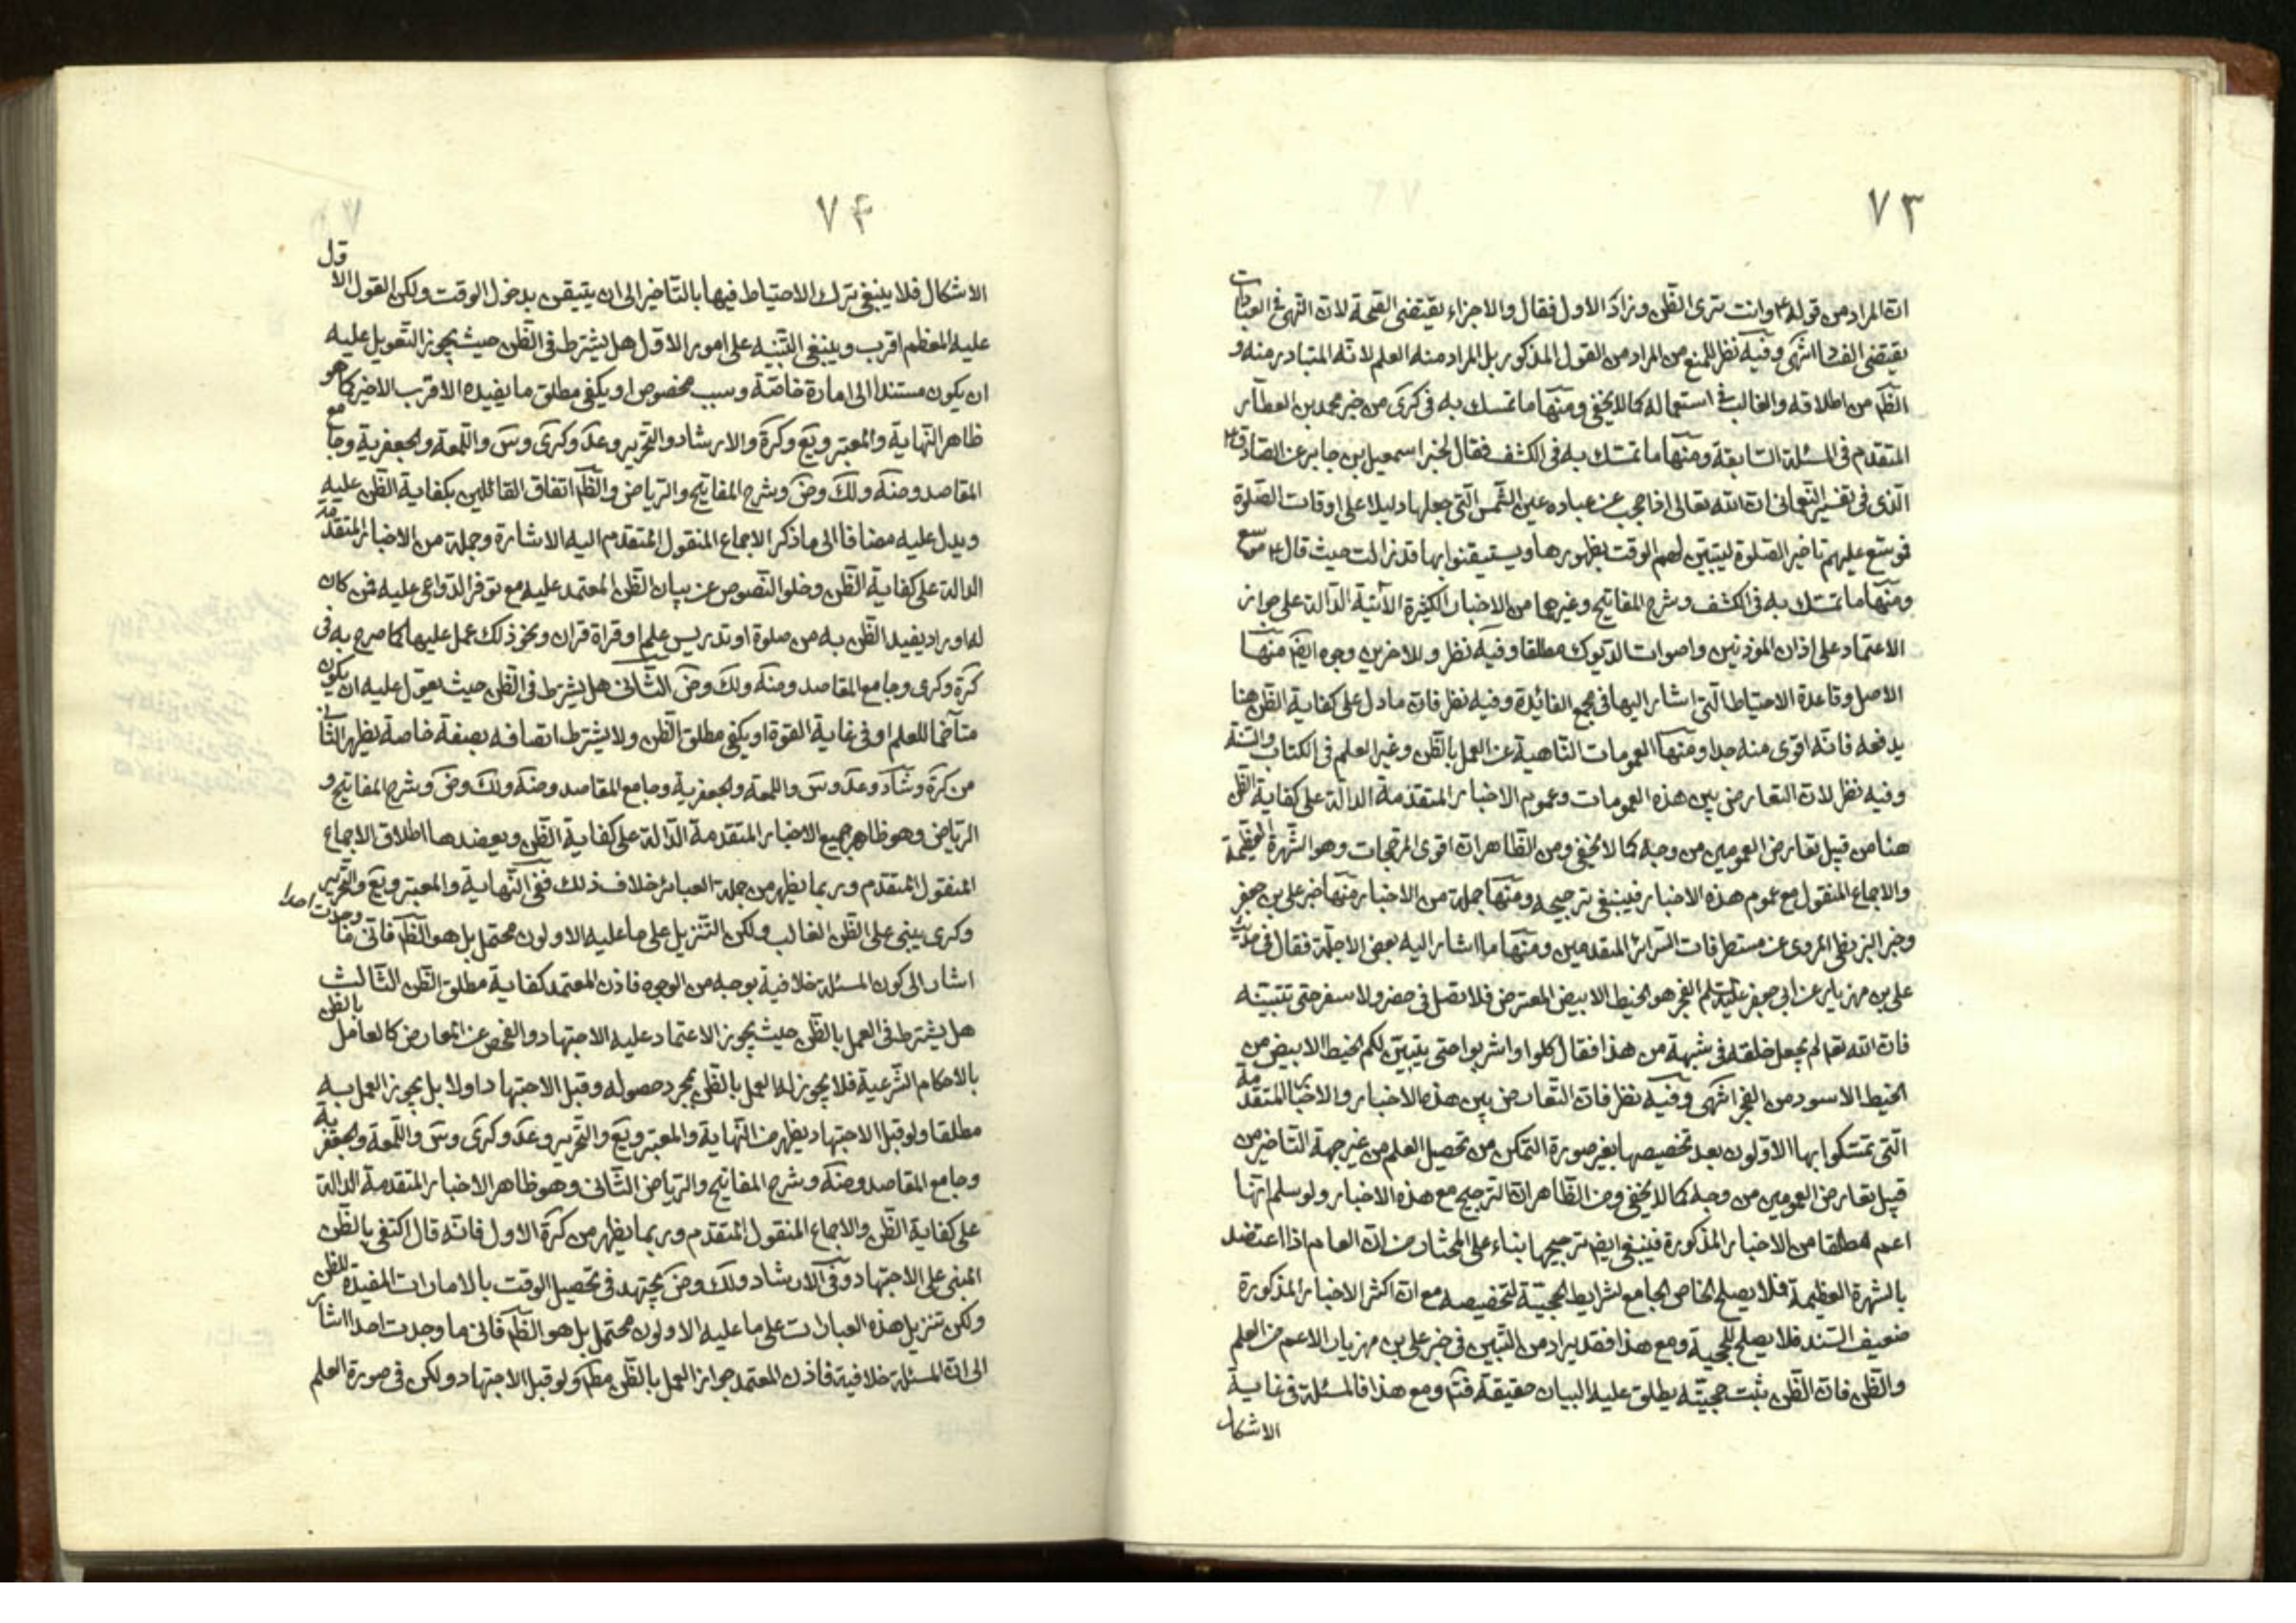 ٧٣
ان المراد من قوله ع وانت ترى الظن وزاد الاول فقال والاجزاء يقتضى الصحة لان النهى فى العبادات
يقتضى الفساد انتهى وفيه نظر للمنع من المراد من القول المذكور بل المراد منه العلم لانه المتبادر منه و
الظ من اطلاقه والغالب فى استعماله كما لا يخفى ومنها ما تمسك به فى كرى من خبر محمد بن العطار
المتقدم فى المسئلة السابقة ومنها ما تمسك به فى الكشف فقال لخبر اسمعيل بن جابر عن الصادق ع
الذى فى تفسير النعمانى ان الله تعالى اذا حجب عن عباده عين الشمس التى جعلها دليلا على اوقات الصلوة
فوسع عليهم تاخير الصلوة ليتبين لهم الوقت بظهورها ويستيقنوا انها قد زالت حيث قال ع موسع
ومنها ما تمسك به فى الكشف وشرح المفاتيح وغيرهما من الاخبار الكثيرة الآتية الدالة على جواز
الاعتماد على اذان الموذنين واصوات الديوك مطلقا وفيه نظر وللاخرين وجوه ايضا منها
الاصل وقاعدة الاحتياط التى اشار اليها فى مجمع الفائدة وفيه نظر فان مادل على كفاية الظن هنا
يدفعه فانه اقوى منه جدا ومنها العمومات الناهية عن العمل بالظن وغير العلم فى الكتاب والسنة
وفيه نظر لان التعارض بين هذه العمومات وعموم الاخبار المتقدمة الدالة على كفاية الظن
هنا من قبيل تعارض العمومين من وجه كما لا يخفى ومن الظاهر ان اقوى المرجحات وهو الشهرة العظيمة
والاجماع المنقول مع عموم هذه الاخبار فينبغى ترجيحه ومنها جملة من الاخبار منها خبر على بن جعفر
وخبر البزنطى المروى عن مستطرفات السرائر المتقدمين ومنها ما اشار اليه بعض الاجلة فقال فى حديث
على بن مهزيار عن ابى جعفر عليه السلم الفجر هو الخيط الابيض المعترض فلا تصل فى حضر ولا سفر حتى تتبينه
فان الله تعالى لم يجعل خلقه فى شبهة من هذا فقال كلوا واشربوا حتى يتبين لكم الخيط الابيض من
الخيط الاسود من الفجر انتهى وفيه نظر فان التعارض بين هذه الاخبار والاخبار المتقدمة
التى تمسكوا بها الاولون بعد تخصيصها بغير صورة التمكن من تحصيل العلم من غير جهة التاخير من
قبيل تعارض العمومين من وجه كما لا يخفى ومن الظاهر ان الترجيح مع هذه الاخبار ولو سلم انها
اعم مطلقا من الاخبار المذكورة فينبغى ايضا ترجيحها بناء على المختار من ان العام اذا اعتضد
بالشهرة العظيمة فلا يصلح الخاص الجامع لشرايط الحجية لتخصيصه مع ان اكثر الاخبار المذكورة
ضعيف السند فلا يصلح للحجية ومع هذا فقد يراد من التبين فى خبر على بن مهزيار الاعم من العلم
والظن فان الظن يثبت حجيته يطلق عليه البيان حقيقة فتم ومع هذا فالمسئلة فى غاية
الاشكال
٧۴
الاشكال فلا ينبغى ترك الاحتياط فيها بالتاخير الى ان يتيقن بدخول الوقت ولكن القول الاول
عليه المعظم اقرب وينبغى التنبيه على امور الاول هل يشترط فى الظن حيث يجوز التعويل عليه
ان يكون مستندا الى امارة خاصة وسبب مخصوص او يكفى مطلق ما يفيده الاقرب الاخير كما هو
ظاهر النهاية والمعتبر ويع وكرة والارشاد والتحرير وعد وكرى وس واللمعة والجعفرية وجامع
المقاصد وضه ولك وض وشرح المفاتيح والرياض والظ اتفاق القائلين بكفاية الظن عليه
ويدل عليه مضافا الى ما ذكر الاجماع المنقول المتقدم اليه الاشارة وجملة من الاخبار المتقدمة
الدالة على كفاية الظن وخلو النصوص عن بيان الظن المعتمد عليه مع توفر الدواعى عليه فمن كان
له اوراد يفيد الظن به من صلوة او تدريس علم او قراة قران ونحو ذلك عمل عليها كما صرح به فى
كرة وكرى وجامع المقاصد وضه ولك وض الثانى هل يشترط فى الظن حيث يعول عليه ان يكون
متاخما للعلم او فى غاية القوة او يكفى مطلق الظن ولا يشترط اتصافه بصفة خاصة يظهر الثانى
من كرة وشاد وعد وس واللمعة والجعفرية وجامع المقاصد وضه ولك وض وشرح المفاتيح و
الرياض وهو ظاهر جميع الاخبار المتقدمة الدالة على كفاية الظن ويعضدها اطلاق الاجماع
المنقول المتقدم وربما يظهر من جملة العبائر خلاف ذلك ففى النهاية والمعتبر ويع والتحرير
وكرى يبنى على الظن الغالب ولكن التنزيل على ما عليه الاولون محتمل بل هو الظ فانى ما وجدت احدا
اشار الى كون المسئلة خلافية بوجه من الوجوه فاذن المعتمد كفاية مطلق الظن الثالث
هل يشترط فى العمل بالظن حيث يجوز الاعتماد عليه الاجتهاد والفحص عن المعارض كالعامل بالظن
بالاحكام الشرعية فلا يجوز له العمل بالظن بمجرد حصوله وقبل الاجتهاد اولا بل يجوز العمل به
مطلقا ولو قبل الاجتهاد يظهر من النهاية والمعتبر ويع والتحرير وعد وكرى وس واللمعة والجعفرية
وجامع المقاصد وضه وشرح المفاتيح والرياض الثانى وهو ظاهر الاخبار المتقدمة الدالة
على كفاية الظن والاجماع المنقول المتقدم وربما يظهر من كرة الاول فانه قال اكتفى بالظن
المبنى على الاجتهاد وفى الارشاد ولك وض يجتهد فى تحصيل الوقت بالامارات المفيدة للظن
ولكن تنزيل هذه العبارات على ما عليه الاولون محتمل بل هو الظ فانى ما وجدت احدا اشار
الى ان المسئلة خلافية فاذن المعتمد جواز العمل بالظن مطلقا ولو قبل الاجتهاد ولكن فى صورة العلم